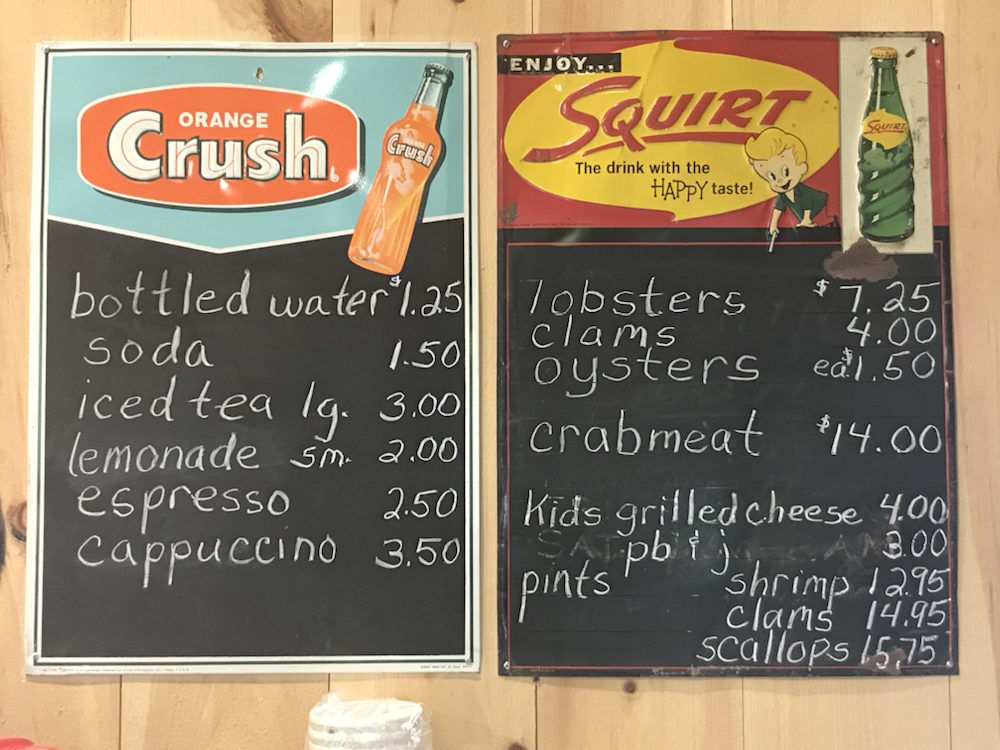 ORANGE
Crush
Crush
bottled water $1.25
soda 1.50
iced tea lg. 3.00
lemonade sm. 2.00
espresso 2.50
cappuccino 3.50
ENJOY...
SQUIRT
SQUIRT
The drink with the
HAPPY taste!
lobsters $7.25
clams 4.00
oysters ea. $1.50
crabmeat $14.00
Kids grilled cheese 4.00
pb & j 3.00
pints shrimp 12.95
clams 14.95
scallops 15.75